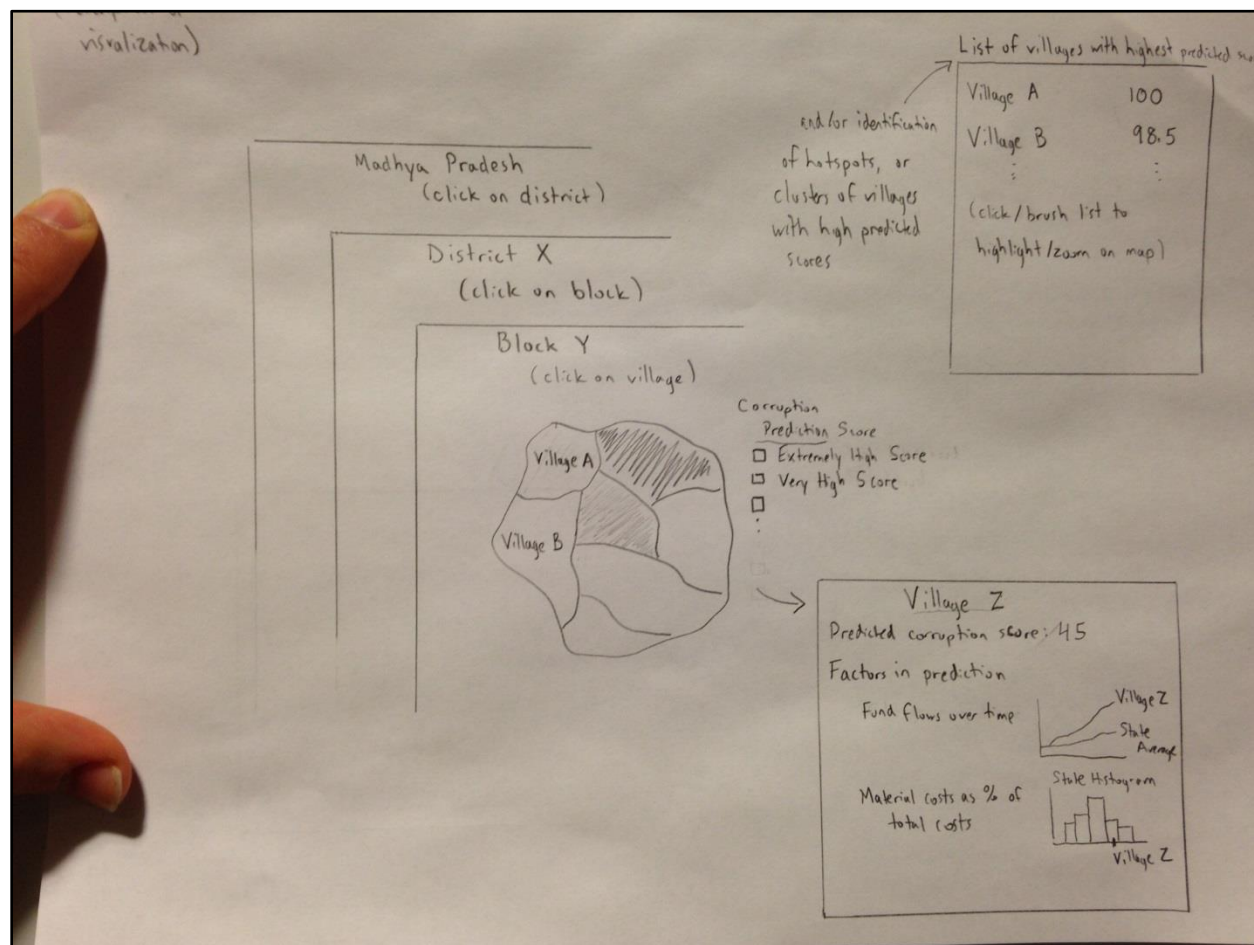 visualization)
Madhya Pradesh
(click on district)
District X
(click on block)
Block Y
(click on village)
Village A
Village B
Corruption
Prediction Score
Extremely High Score
Very High Score
and/or identification
of hotspots, or
clusters of villages
with high predicted
scores
List of villages with highest predicted
Village A 100
Village B 98.5
(click/brush list to
highlight/zoom on map)
Village Z
Predicted corruption score: 45
Factors in prediction
Fund flows over time
Village Z
State
Average
Material costs as % of
total costs
State Histogram
Village Z